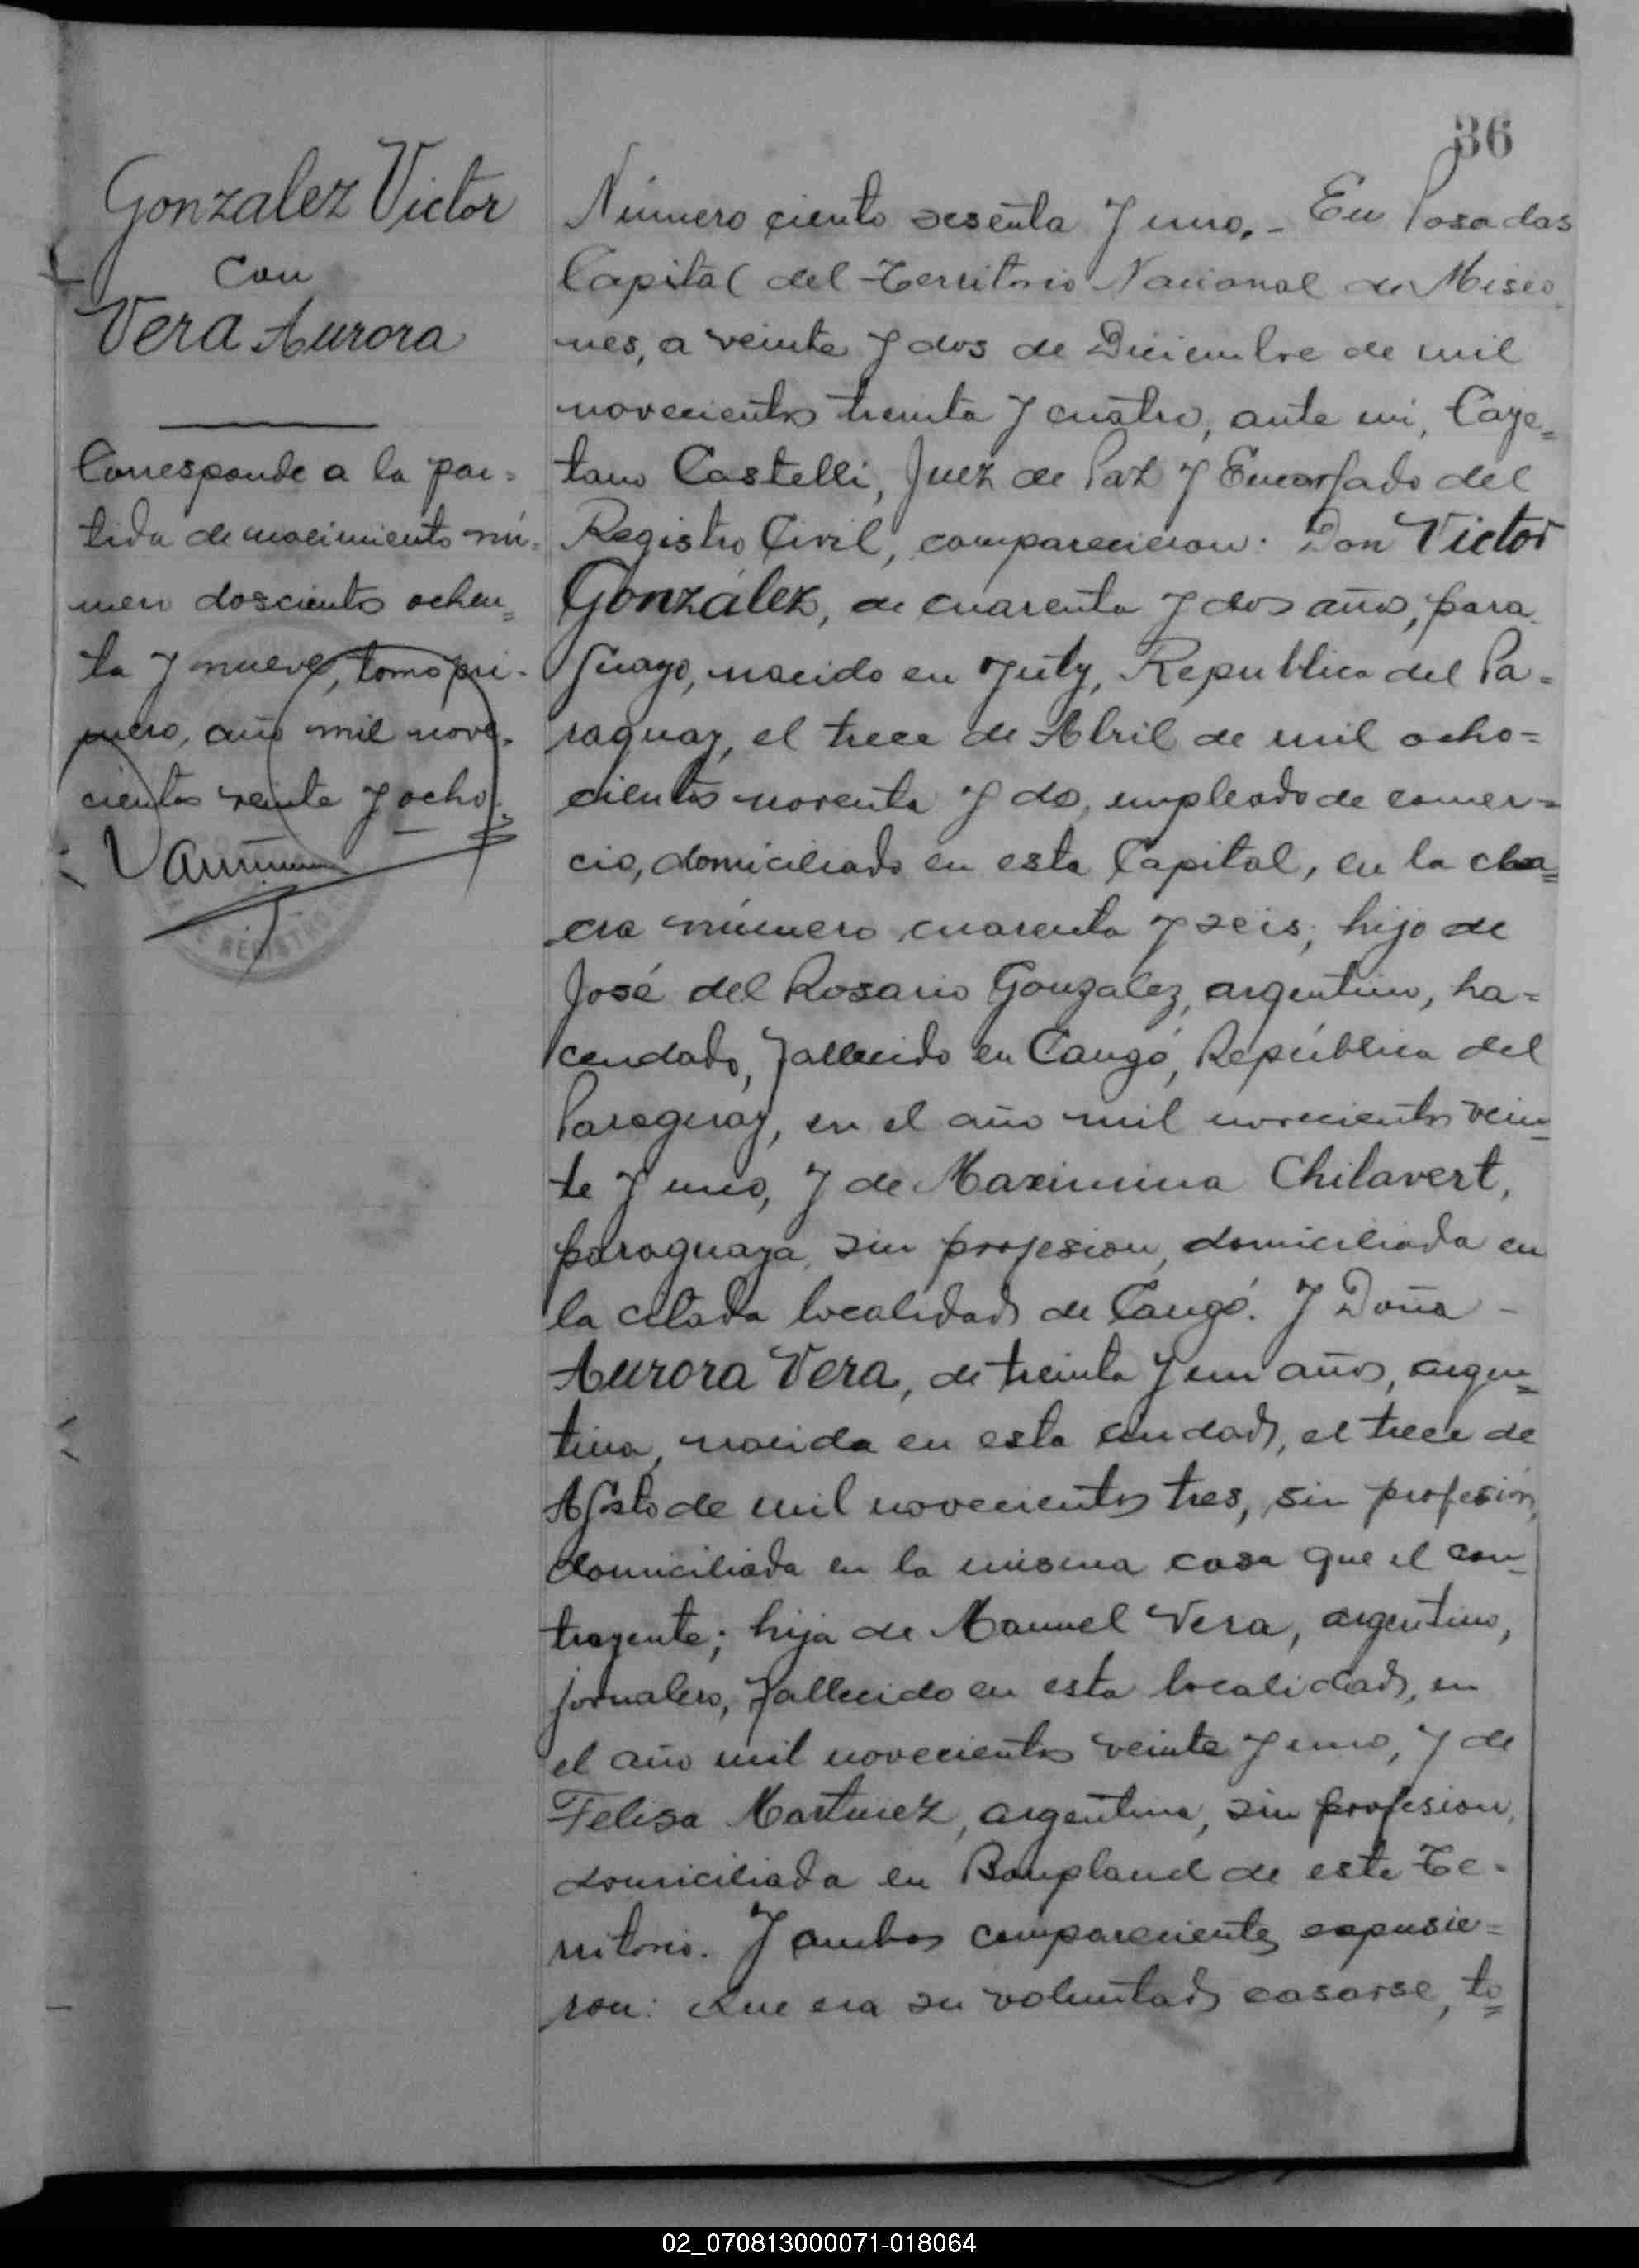 36
Gonzalez Victor
con
Vera Aurora
Corresponde a la par=
tida de nacimiento nú=
mero doscientos ochen=
ta y nueve, tomo pri-
mero, año mil nove-
cientos veinte y ocho.
REGISTRO
Número ciento sesenta y uno.- En Posadas
Capital del Territorio Nacional de Misio
nes, a veinte y dos de Diciembre de mil
novecientos treinta y cuatro, ante mi, Caye=
tano Castelli, Juez de Paz y Encargado del
Registro Civil, comparecieron: Don Victor
González, de cuarenta y dos años, para
guayo, nacido en Yuty, Republica del Pa=
raguay, el trece de Abril de mil ocho=
cientos noventa y dos, empleado de comer=
cio, domiciliado en esta Capital, en la cha=
cra número cuarenta y seis; hijo de
José del Rosario Gonzalez, argentino, ha=
cendado, fallecido en Cangó, República del
Paraguay, en el año mil novecientos vein=
te y uno, y de Maximina Chilavert,
paraguaya, sin profesion, domiciliada en
la citada localidad de Cangó. Y Doña -
Aurora Vera, de treinta y un años, argen=
tina, nacida en esta ciudad, el trece de
Agosto de mil novecientos tres, sin profesión,
domiciliada en la misma casa que el con=
trayente; hija de Manuel Vera, argentino,
jornalero, fallecido en esta localidad, en
el año mil novecientos veinte y uno, y de
Felisa Martinez, argentina, sin profesion,
domiciliada en Bonpland de este Te=
rritorio. Y ambos comparecientes expusie=
ron: Que era su voluntad casarse, to=
02_070813000071-018064